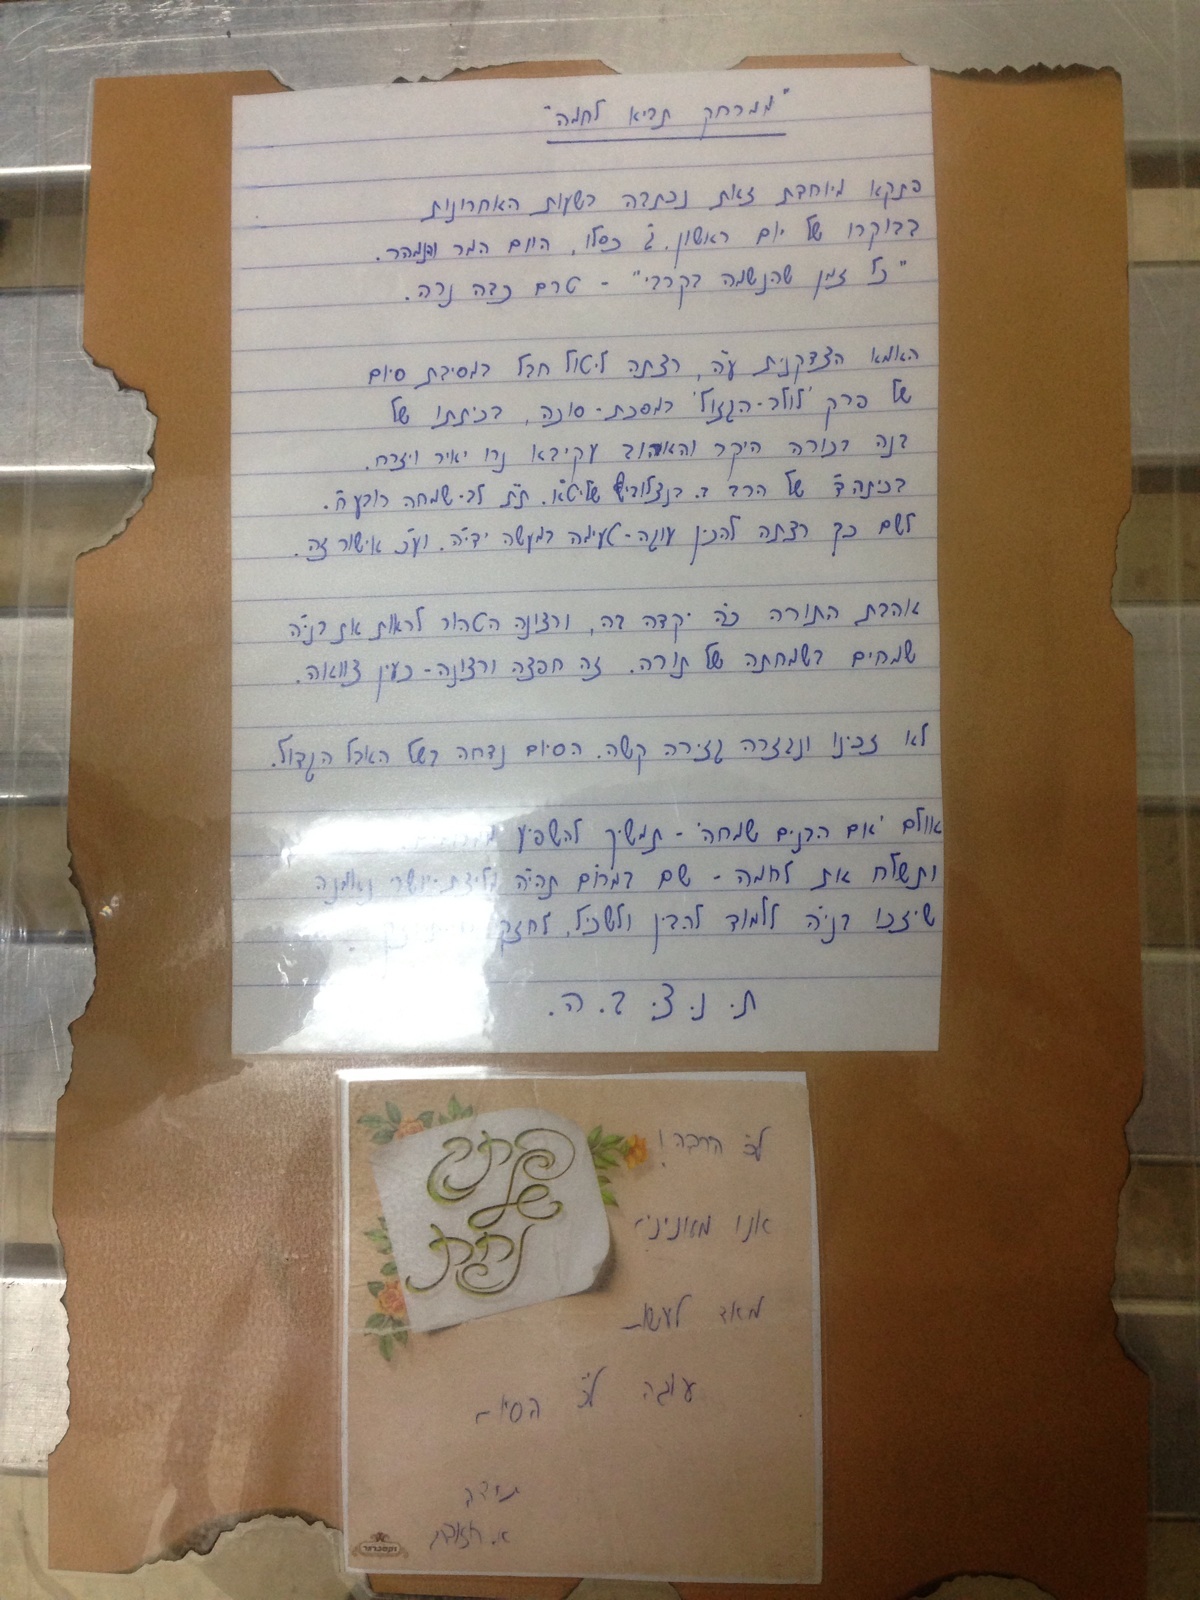 "ממרחק תביא לחמה"
פתקא מיוחדת זאת נכתבה בשעות האחרונות
בבוקרו של יום ראשון, ג' כסלו, היום המר והנמהר.
"כל זמן שהנשמה בקרבי" - טרם כבה נרה.
האמא הצדקנית ע"ה, רצתה ליטול חבל במסיבת סיום
של פרק 'לולב-הגזול' במסכת-סוכה, בכיתתו של
בנה בכורה היקר והאהוב עקיבא נרו יאיר ויזרח.
בכיתה של הרב שליט"א. ת"ת לב-שמחה
לשם כך רצתה להכין עוגה-טעימה במעשה ידי'ה. וע"כ אישור זה.
אהבת התורה כ"כ יקדה בה, ורצונה הטהור לראות את בני'ה
שמחים בשמחתה של תורה. זה חפצה ורצונה-כעין צוואה.
לא זכינו ונגזרה גזירה קשה. הסיום נדחה בשל האבל הגדול.
אולם 'אם הבנים שמחה' - תמשיך להשפיע
ותשלח את לחמה - שם במרום תהי'ה מליצת-יושר נאמנה
שיזכו בני'ה ללמוד להבין ולשכיל, לחזק
ת. נ. צ. ב. ה.
פתק של נחת
לכ' הרבה!
אנו מאוניני'
מאד לעשות
עוגה לכ' הסיום
תודה
א.